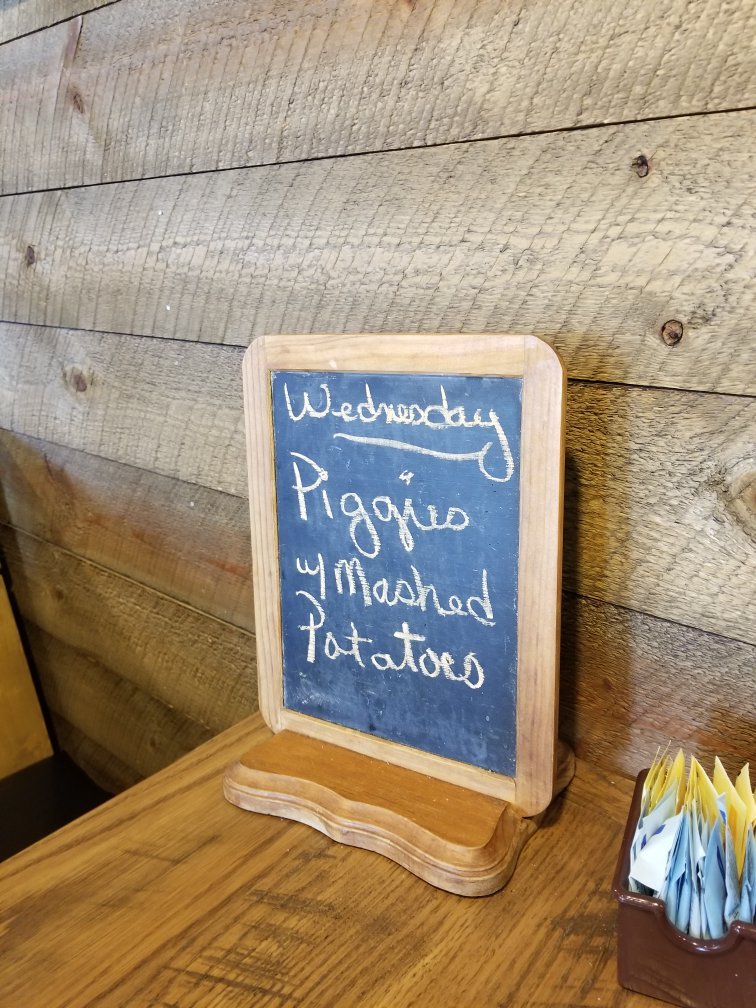 Wednesday
Piggies
w/ Mashed
Potatoes